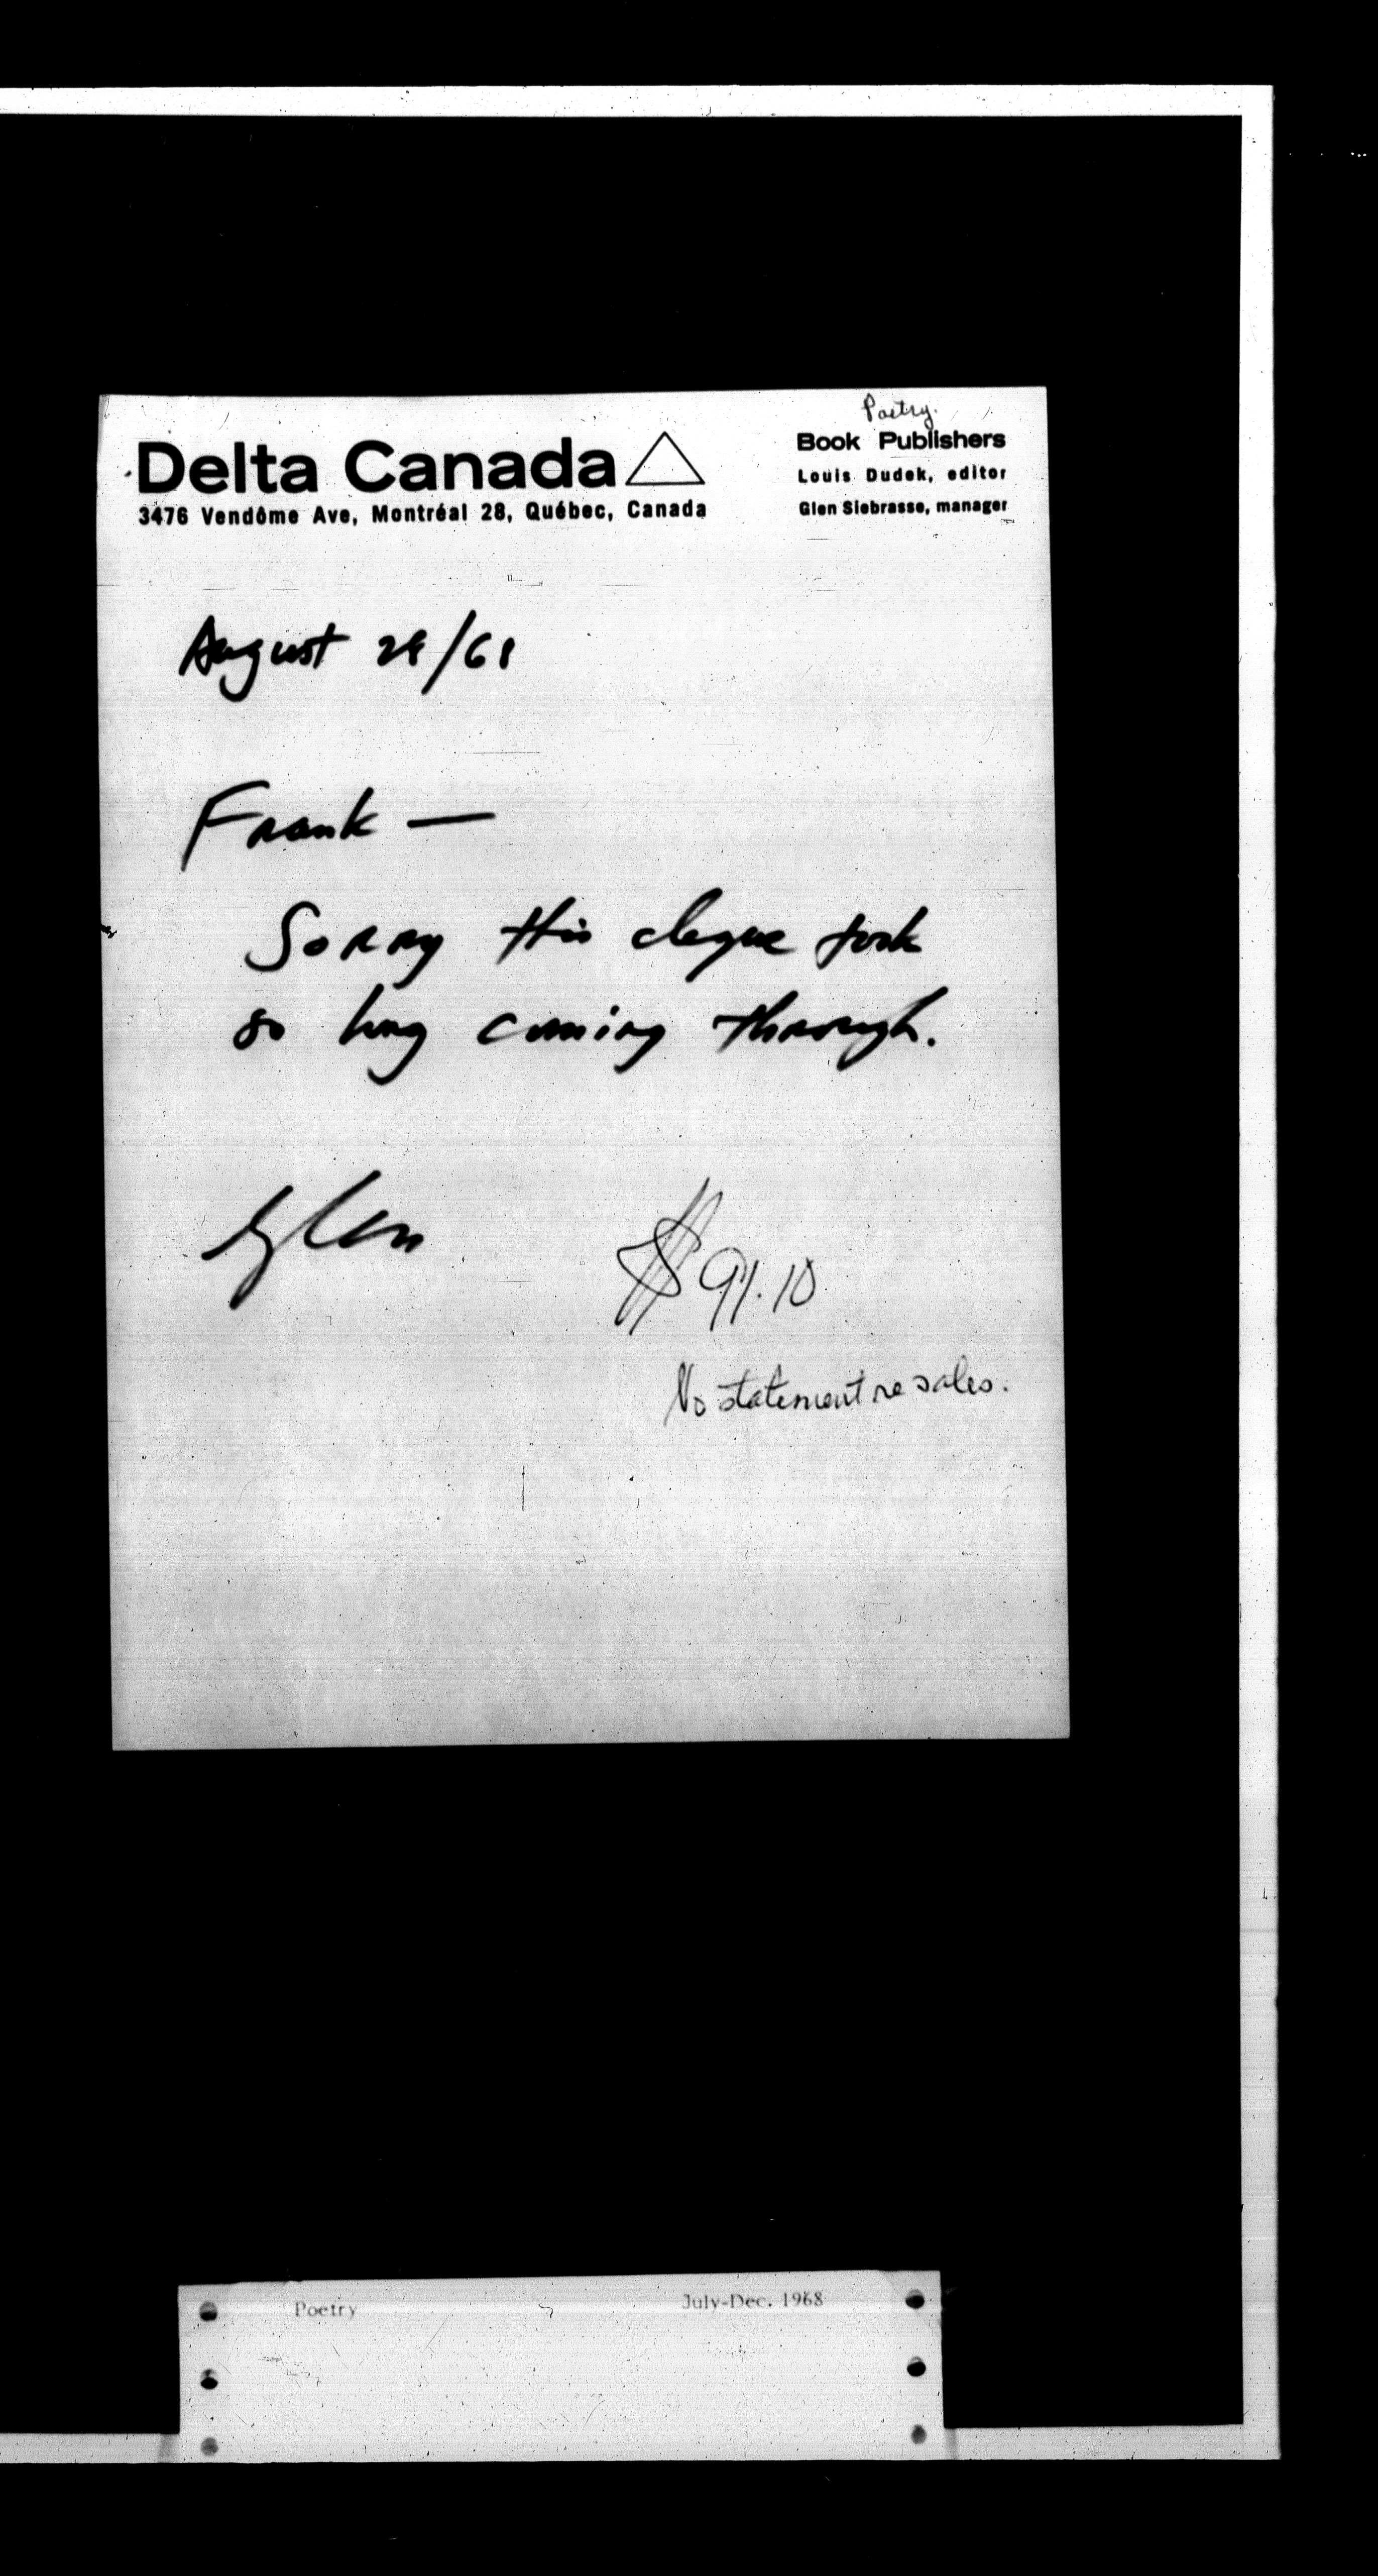 Poetry.
Delta Canada
Book Publishers
Louis Dudek, editor
3476 Vendôme Ave, Montréal 28, Québec, Canada
Glen Siebrasse, manager
August 28/68
Frank —
Sorry this cheque took
so long coming through.
Glen
$91.10
No statement re sales.
Poetry
July-Dec. 1968